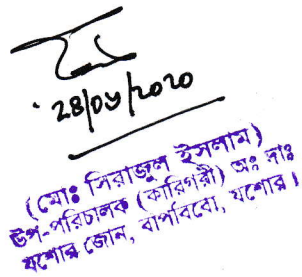 ২৪/০৬/২০২০
(মোঃ সিরাজুল ইসলাম)
উপ-পরিচালক (কারিগরী) অঃ দাঃ
যশোর জোন, বাপবিবো, যশোর।